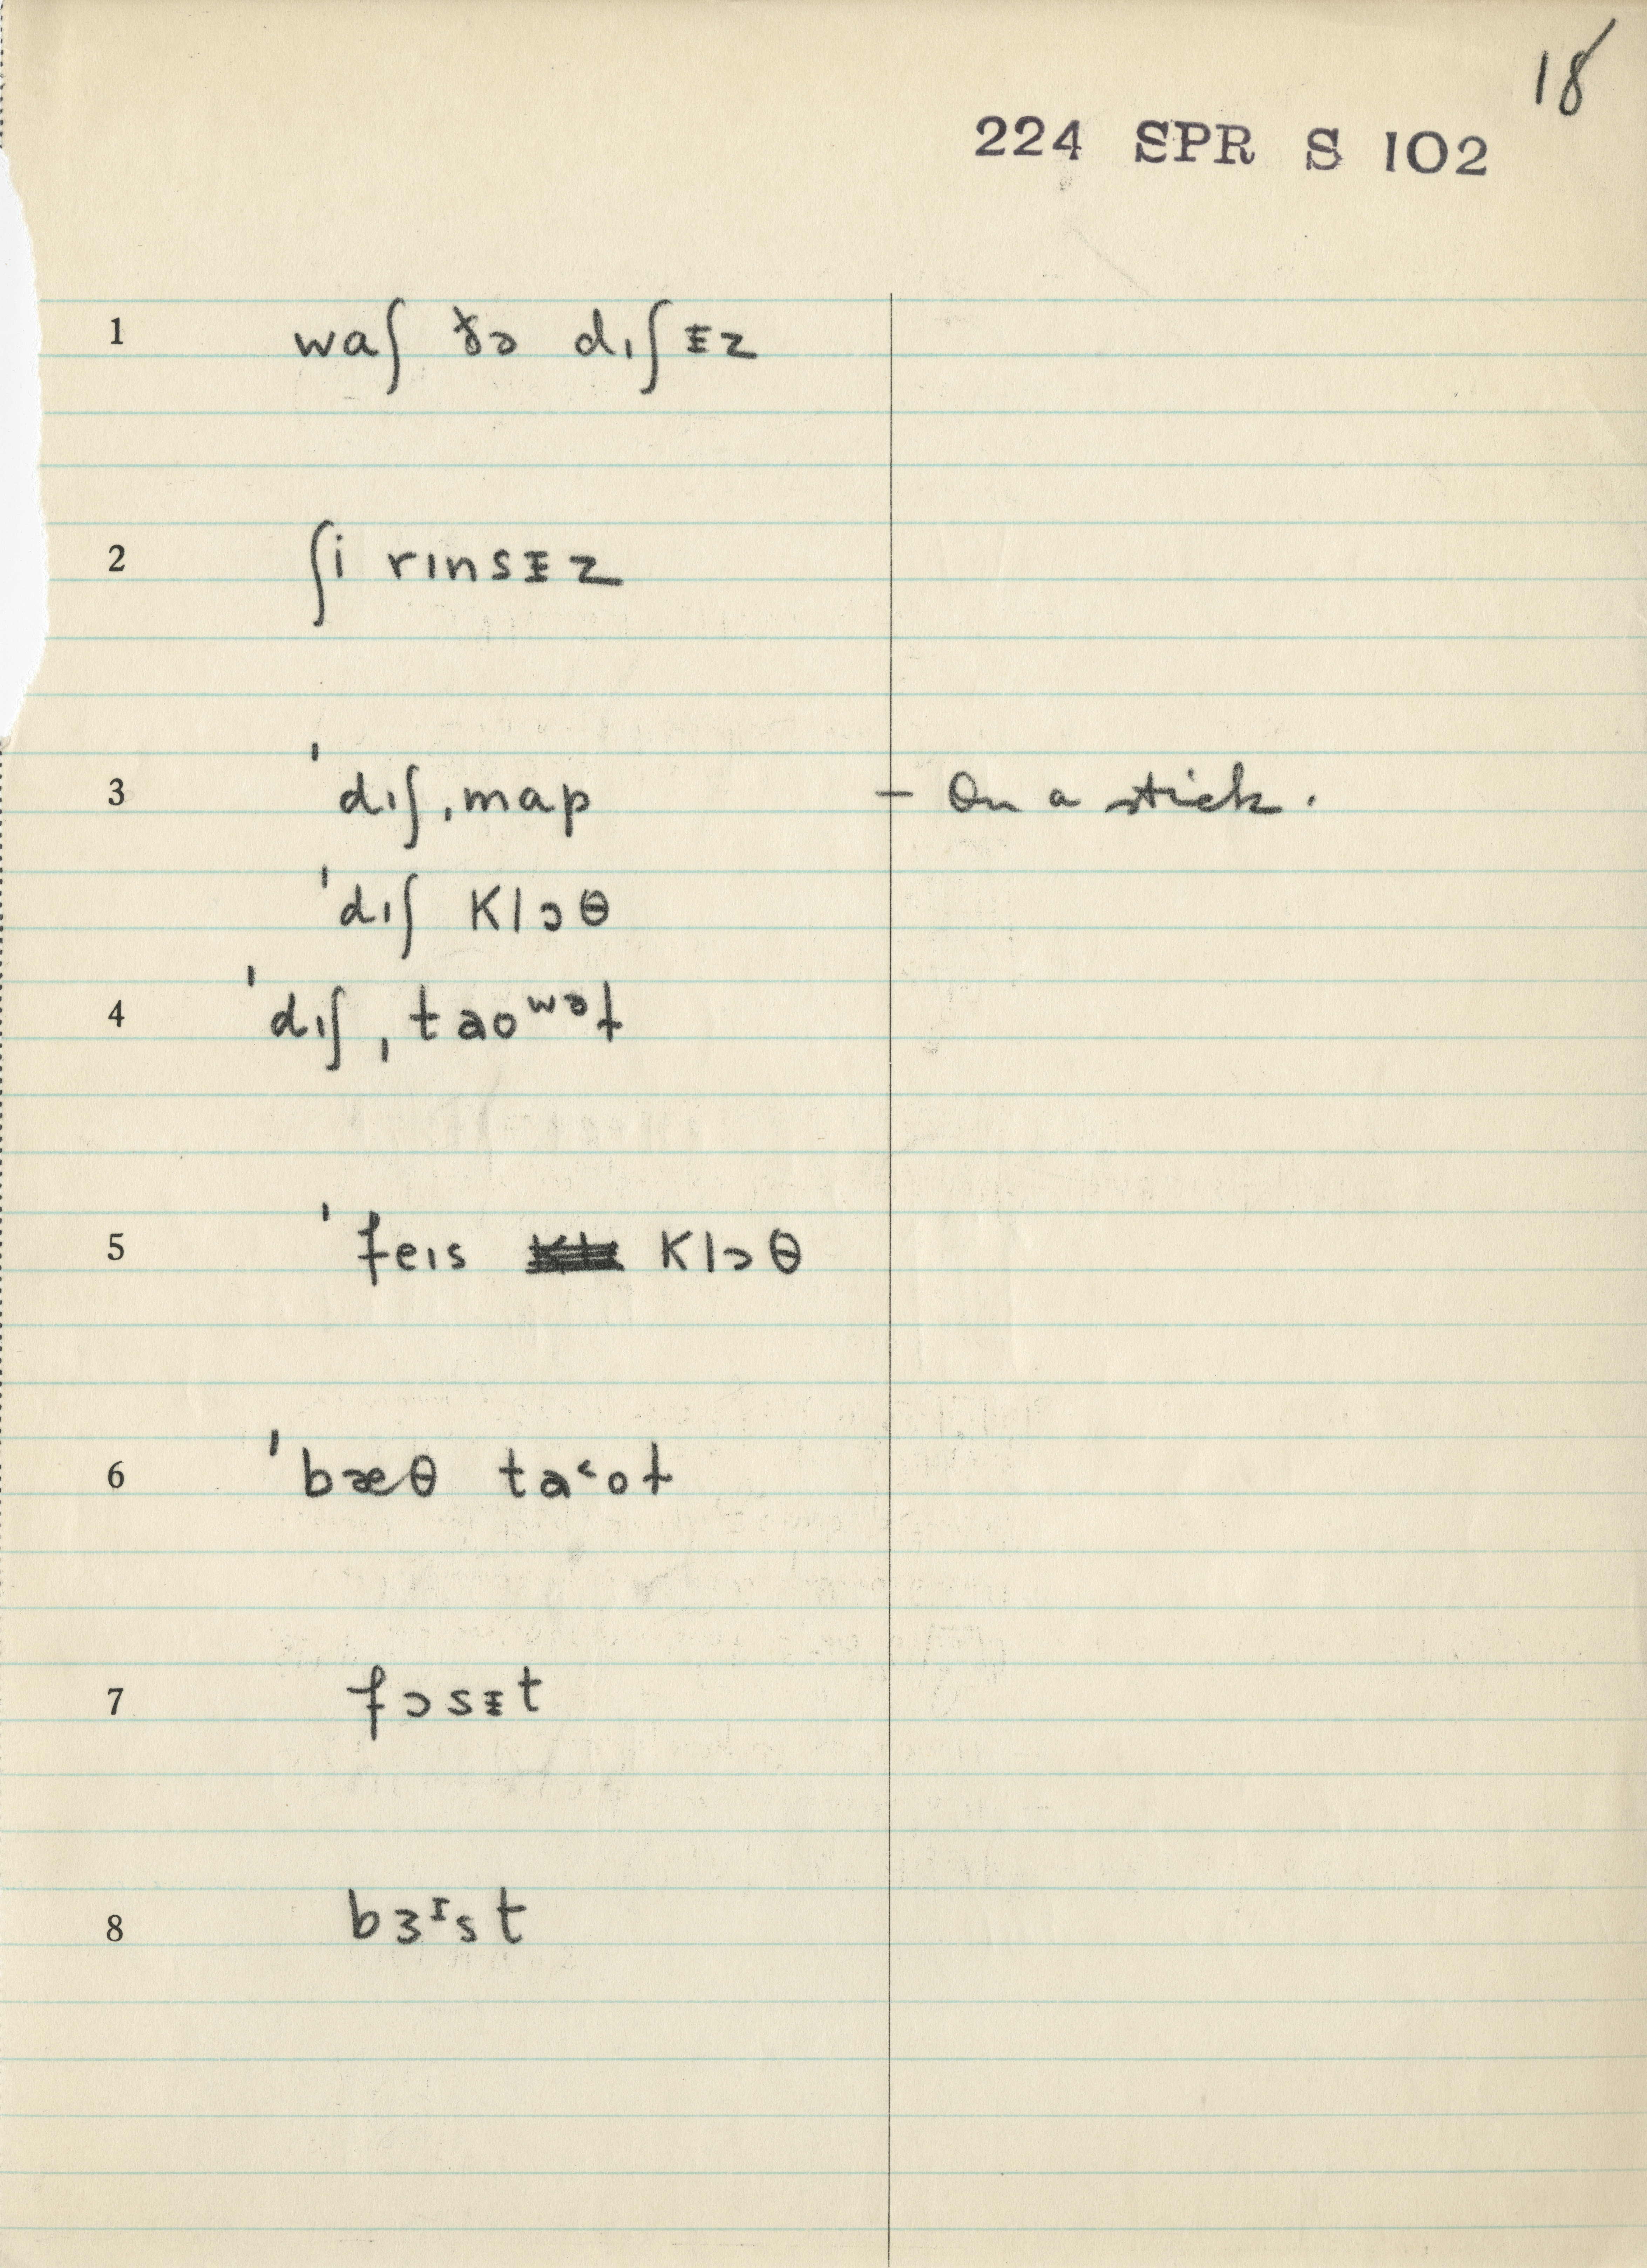 18
224 SPR S 102
1 waʃ ðə dɪʃᵻz
2 ʃi rɪnsᵻz
3 ˈdɪʃˌmap – On a stick.
ˈdɪʃ klɔθ
4 ˈdɪʃˌtaoʷəɫ
5 ˈfeɪs klɔθ
6 ˈbæθ ta˂oɫ
7 fɔsᵻt
8 bɜᶦst